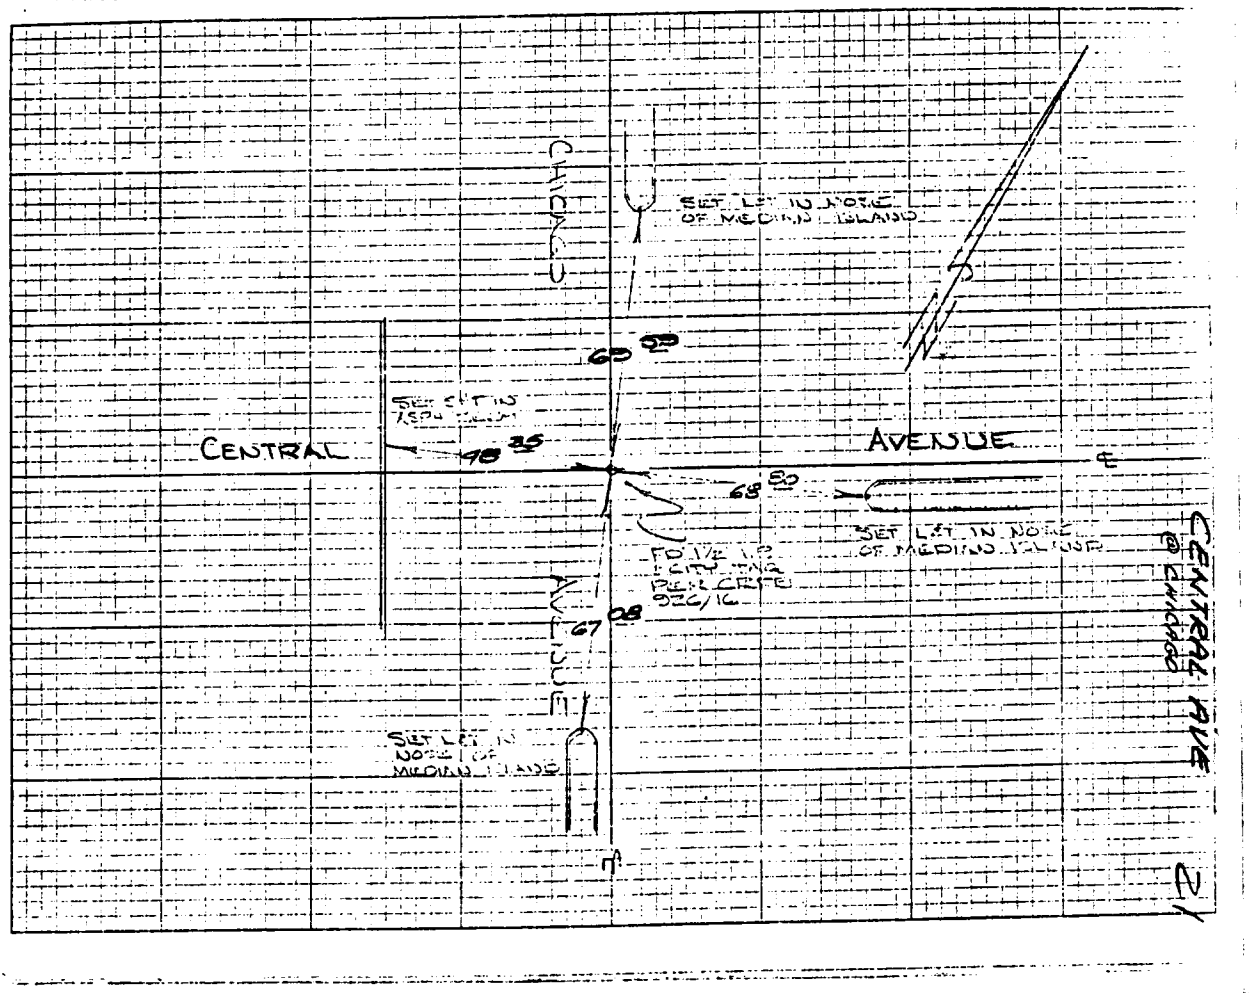 CHICAGO
SET L&T IN NOSE
OF MEDIAN ISLAND
69 09
SET IN
CENTRAL
98 35
AVENUE
68 80
SET L&T IN NOSE
OF MEDIAN ISLAND
FD 1/2 I.P.
CITY
PER
926/16
67 08
AVENUE
SET L&T IN
NOSE OF
MEDIAN ISLAND
CENTRAL AVE
@ CHICAGO
21